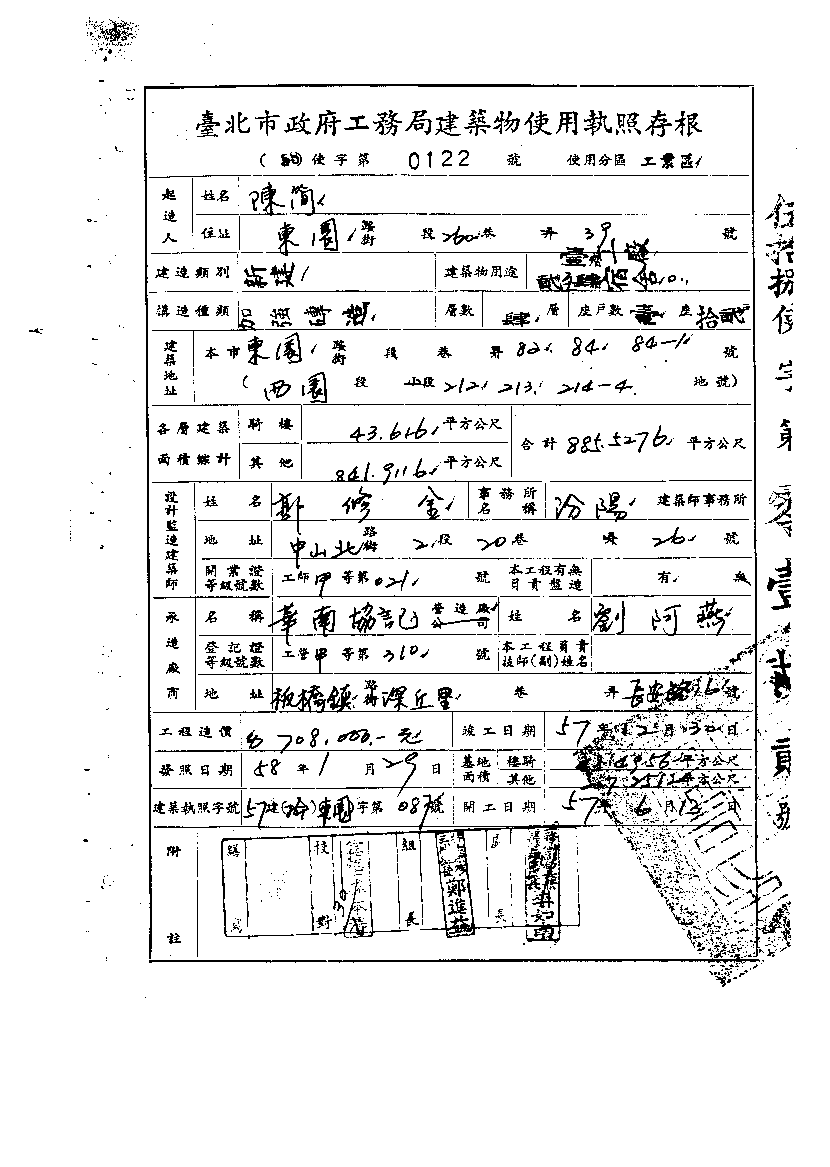 臺北市政府工務局建築物使用執照存根
使字第 0122 號 使用分區 工業區
起造人 姓名 陳簡
住址 東園 路街 段 260巷 弄 39 號
建造類別 新建 建築物用途
構造種類 加強磚造 層數 肆層 座戶數 壹座 拾貳戶
建築地址 本市 東園 路街 段 巷 弄 82. 84. 84-1 號
(西園 段 小段 212. 213. 214-4 地號)
各層建築面積總計 騎樓 43.616 平方公尺 合計 885.5276 平方公尺
其他 841.9116 平方公尺
設計監造建築師 姓名 修金 事務所名稱 汾陽 建築師事務所
地址 中山北路街 2段 20巷 弄 26 號
開業證等級號數 工師甲等第021 號 本工程有無日責監造 有 無
承造廠商 名稱 華南協記 營造廠公司 姓名 劉阿燕
登記證等級號數 工營甲等第310 號 本工程負責技師(副)姓名
地址 板橋鎮 路街 深丘里 巷 弄 長安路 號
工程造價 708,000.-元 竣工日期 57年12月30日
發照日期 58年1月29日 基地面積 騎樓 平方公尺
其他 平方公尺
建築執照字號 57建( )東園字第087號 開工日期 57年6月13日
附註 校對 組長 鄭進
伍拾捌使字第零壹貳貳號